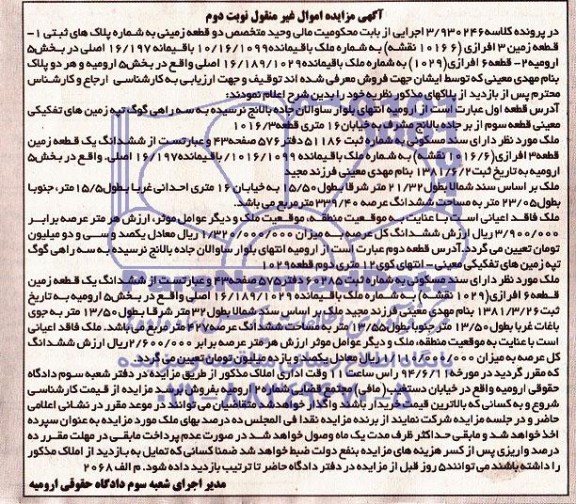 آگهی مزایده اموال غیر منقول نوبت دوم
در پرونده کلاسه ۳/۹۳۰۲۴۶ اجرایی از بابت محکومیت مالی وحید متخصص دو قطعه زمینی به شماره پلاک های ثبتی ۱-
قطعه زمین ۳ افرازی (۶ ۱۰۱۶ نقشه) به شماره ملک باقیمانده ۱۰/۱۶/۱۰۹۹ باقیمانده ۱۶/۱۹۷ اصلی در بخش ۵
ارومیه ۲- قطعه ۶ افرازی (۱۰۲۹) به شماره ملک باقیمانده ۱۶/۱۸۹/۱۰۲۹ اصلی واقع در بخش ۵ ارومیه و هر دو پلاک
بنام مهدی معینی که توسط ایشان جهت فروش معرفی شده اند توقیف و جهت ارزیابی به کارشناسی ارجاع و کارشناس
محترم پس از بازدید از پلاکهای مذکور نظریه خود را بدین شرح اعلام نمودند:
آدرس قطعه اول عبارت است از ارومیه انتهای بلوار ساوالان جاده بالانج نرسیده به سه راهی گوگ تپه زمین های تفکیکی
معینی قطعه سوم از بر جاده بالانج مشرف به خیابان ۱۶ متری قطعه ۱۰۱۶/۳
ملک مورد نظر دارای سند مسکونی به شماره ثبت ۵۱۱۸۶ دفتر ۵۷۶ صفحه ۴۳ و عبارتست از ششدانگ یک قطعه زمین
قطعه ۳ افرازی (۱۰۱۶/۶ نقشه) به شماره ملک باقیمانده ۱۰۱۶/۱۰۹۹ باقیمانده ۱۶/۱۹۷ اصلی. واقع در بخش ۵
ارومیه به تاریخ ثبت ۱۳۸۱/۶/۲ بنام مهدی معینی فرزند مجید
ملک بر اساس سند شمالا بطول ۲۱/۳۲ متر شرقا بطول ۱۵/۵۰ به خیابان ۱۶ متری احداثی غربا بطول ۱۵/۵ متر، جنوبا
بطول ۲۳/۰۵ متر به مساحت ششدانگ عرصه ۳۳۹/۴۰ مترمربع می باشد.
ملک فاقد اعیانی است با عنایت به موقعیت منطقه، موقعیت ملک و دیگر عوامل موثر، ارزش هر متر عرصه برابر
۳/۹۰۰/۰۰۰ ریال ارزش ششدانگ کل عرصه به میزان ۱/۳۲۰/۰۰۰/۰۰۰ ریال معادل یکصد و سی و دو میلیون
تومان تعیین می گردد. آدرس قطعه دوم عبارت است از ارومیه انتهای بلوار ساوالان جاده بالانج نرسیده به سه راهی گوگ
تپه زمین های تفکیکی معینی - انتهای کوی ۱۲ متری دوم قطعه ۱۰۲۹
ملک مورد نظر دارای سند مسکونی به شماره ثبت ۶۰۲۸۵ دفتر ۵۷۵ صفحه ۴۳ و عبارتست از ششدانگ یک قطعه زمین
قطعه ۶ افرازی (۱۰۲۹ نقشه) به شماره ملک باقیمانده ۱۶/۱۸۹/۱۰۲۹ اصلی واقع در بخش ۵ ارومیه به تاریخ
ثبت ۱۳۸۱/۳/۲۶ بنام مهدی معینی فرزند مجید ملک بر اساس سند شمالا بطول ۳۲ متر شرقا بطول ۱۳/۵۰ متر به جوی
باغات غربا بطول ۱۳/۵۰ متر جنوبا بطول ۳۱/۵۰ متر به مساحت ششدانگ عرصه ۴۲۷ مترمربع می باشد. ملک فاقد اعیانی
است با عنایت به موقعیت منطقه، ملک و دیگر عوامل موثر ارزش هر متر عرصه برابر ۲/۶۰۰/۰۰۰ ریال ارزش ششدانگ
کل عرصه به میزان ۱/۱۱۰/۰۰۰/۰۰۰ ریال معادل یکصد و یازده میلیون تومان تعیین می گردد.
که مقرر گردید در مورخه ۹۴/۶/۱۲ راس ساعت ۱۱ وقت اداری املاک مذکور از طریق مزایده در دفتر شعبه سوم دادگاه
حقوقی ارومیه واقع در خیابان دستغیب (مافی) مجتمع قضایی شماره ۲ ارومیه بفروش می رسد مزایده از قیمت کارشناسی
شروع و به کسانی که بالاترین قیمت خریدار باشد واگذار خواهد شد متقاضیان می توانند در موعد مقرر در نشانی اعلامی
حاضر و در جلسه مزایده شرکت نمایند از برنده مزایده نقدا فی المجلس ده درصد بهای ملک مورد مزایده به عنوان سپرده
اخذ خواهد شد و مابقی حداکثر ظرف مدت یک ماه وصول خواهد شد در صورت عدم پرداخت مابقی در مهلت مقرر ده
درصد واریزی پس از کسر هزینه های مزایده بنفع دولت ضبط خواهد شد ضمنا کسانی که تمایل به بازدید از املاک مذکور
را داشته باشند می توانند ۵ روز قبل از مزایده در دفتر دادگاه حاضر تا ترتیب بازدید داده شود. م الف ۲۰۶۸
مدیر اجرای شعبه سوم دادگاه حقوقی ارومیه
۰۲۱-۸۸۳۴۹۶۷۰-۵